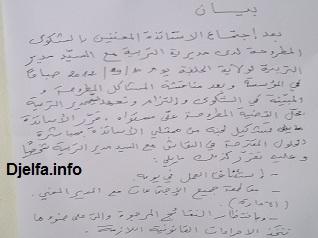 بيــان
بعد إجتماع الأساتذة المعنيين بالشكوى
المطروحة لدى مديرية التربية مع السيد مدير
التربية لولاية الجلفة يوم 2012 صباحا
في المؤسسة وبعد مناقشة المشاكل المطروحة و
المبينة في الشكوى والتزام وتعهد مدير التربية
بحل القضية المطروحة على مستواه، قرر الأساتذة
تشكيل لجنة من ممثلي الأساتذة مباشرة
الحلول المقترحة في النقاش مع السيد مدير التربية
وعليه تقرر ما يلي:
- إستئناف العمل في يومه
- مقاطعة جميع الاجتماعات مع المدير المعني.
- وبانتظار النتائج المرجوة والتي على ضوئها
تتخذ الإجراءات القانونية اللازمة.
Djelfa.info